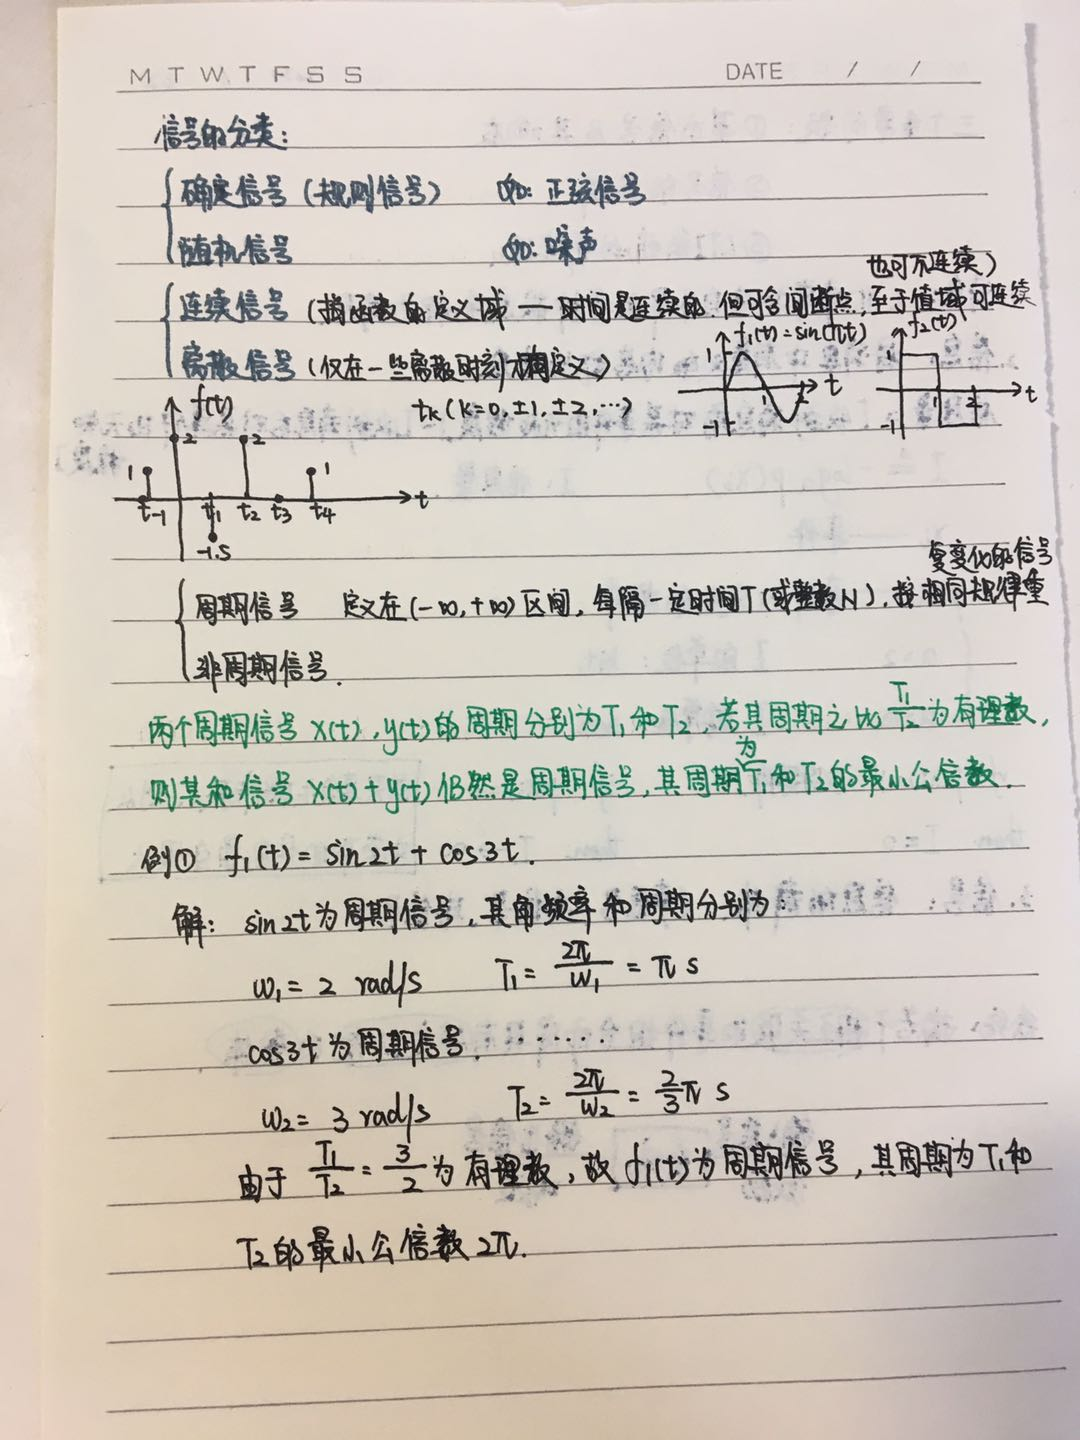 M T W T F S S
DATE / /
信号的分类:
确定信号（规则信号） 如: 正弦信号
随机信号 如: 噪声
连续信号（指函数的定义域—时间是连续的, 但可含间断点, 至于值域可连续
也可不连续）
离散信号（仅在一些离散时刻才有定义）
tk (k=0, ±1, ±2, …)
f₁(t) = sin(πt)
1
-1
1
2
t
f₂(t)
1
-1
1
2
t
f(t)
2
2
1
1
t-1
t1
t2
t3
t4
t
-1.5
周期信号 定义在(-∞, +∞)区间, 每隔一定时间T(或整数N), 按相同规律重
复变化的信号
非周期信号.
两个周期信号 x(t), y(t)的周期分别为T₁和T₂, 若其周期之比 T₁/T₂ 为有理数,
则其和信号 x(t)+y(t)仍然是周期信号, 其周期为T₁和T₂的最小公倍数.
例① f₁(t) = sin2t + cos3t.
解: sin2t为周期信号, 其角频率和周期分别为
ω₁= 2 rad/s T₁= 2π/ω₁ = π s
cos3t为周期信号. ······
ω₂= 3 rad/s T₂= 2π/ω₂ = 2/3 π s
由于 T₁/T₂ = 3/2 为有理数, 故f₁(t)为周期信号, 其周期为T₁和
T₂的最小公倍数2π.